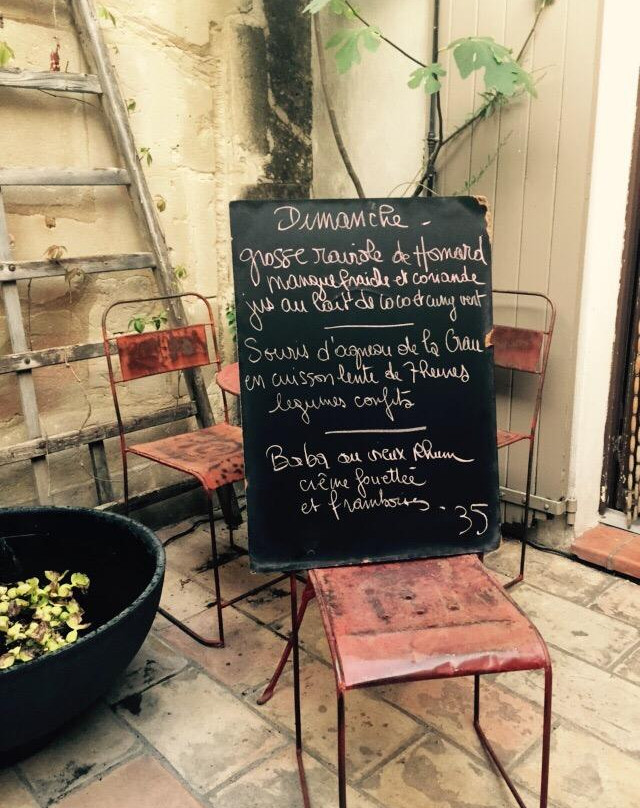 Dimanche -
grosse raviole de Homard
mangue fraiche et coriandre
jus au lait de coco et curry vert
Souris d'agneau de la Crau
en cuisson lente de 7 heures
légumes confits
Baba au vieux Rhum
crème fouettée
et framboises - 35